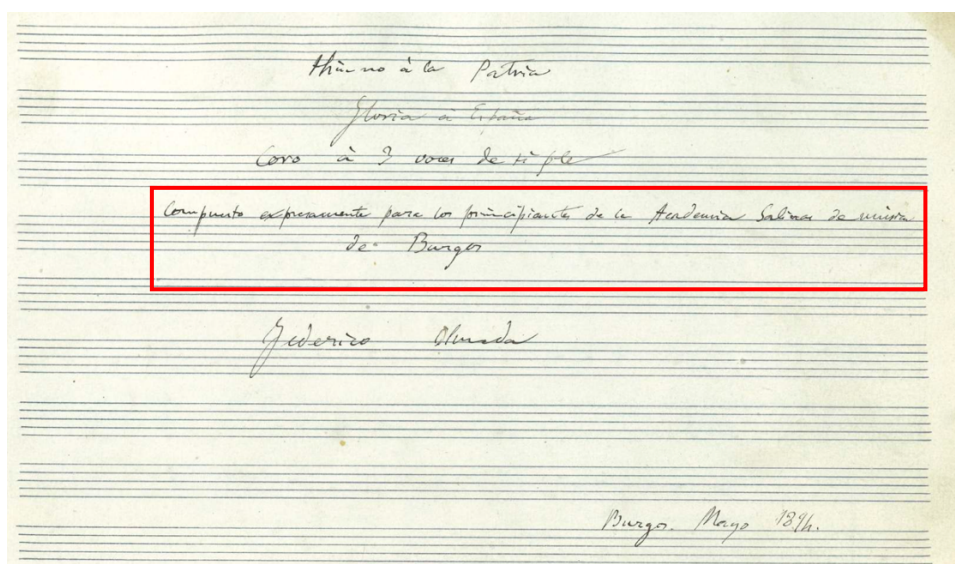 Himno à la Patria
Gloria à España
Coro à 3 voces de tiple
Compuesto expresamente para los principiantes de la Academia Salinas de música
de Burgos
Federico Olmeda
Burgos. Mayo 1894.